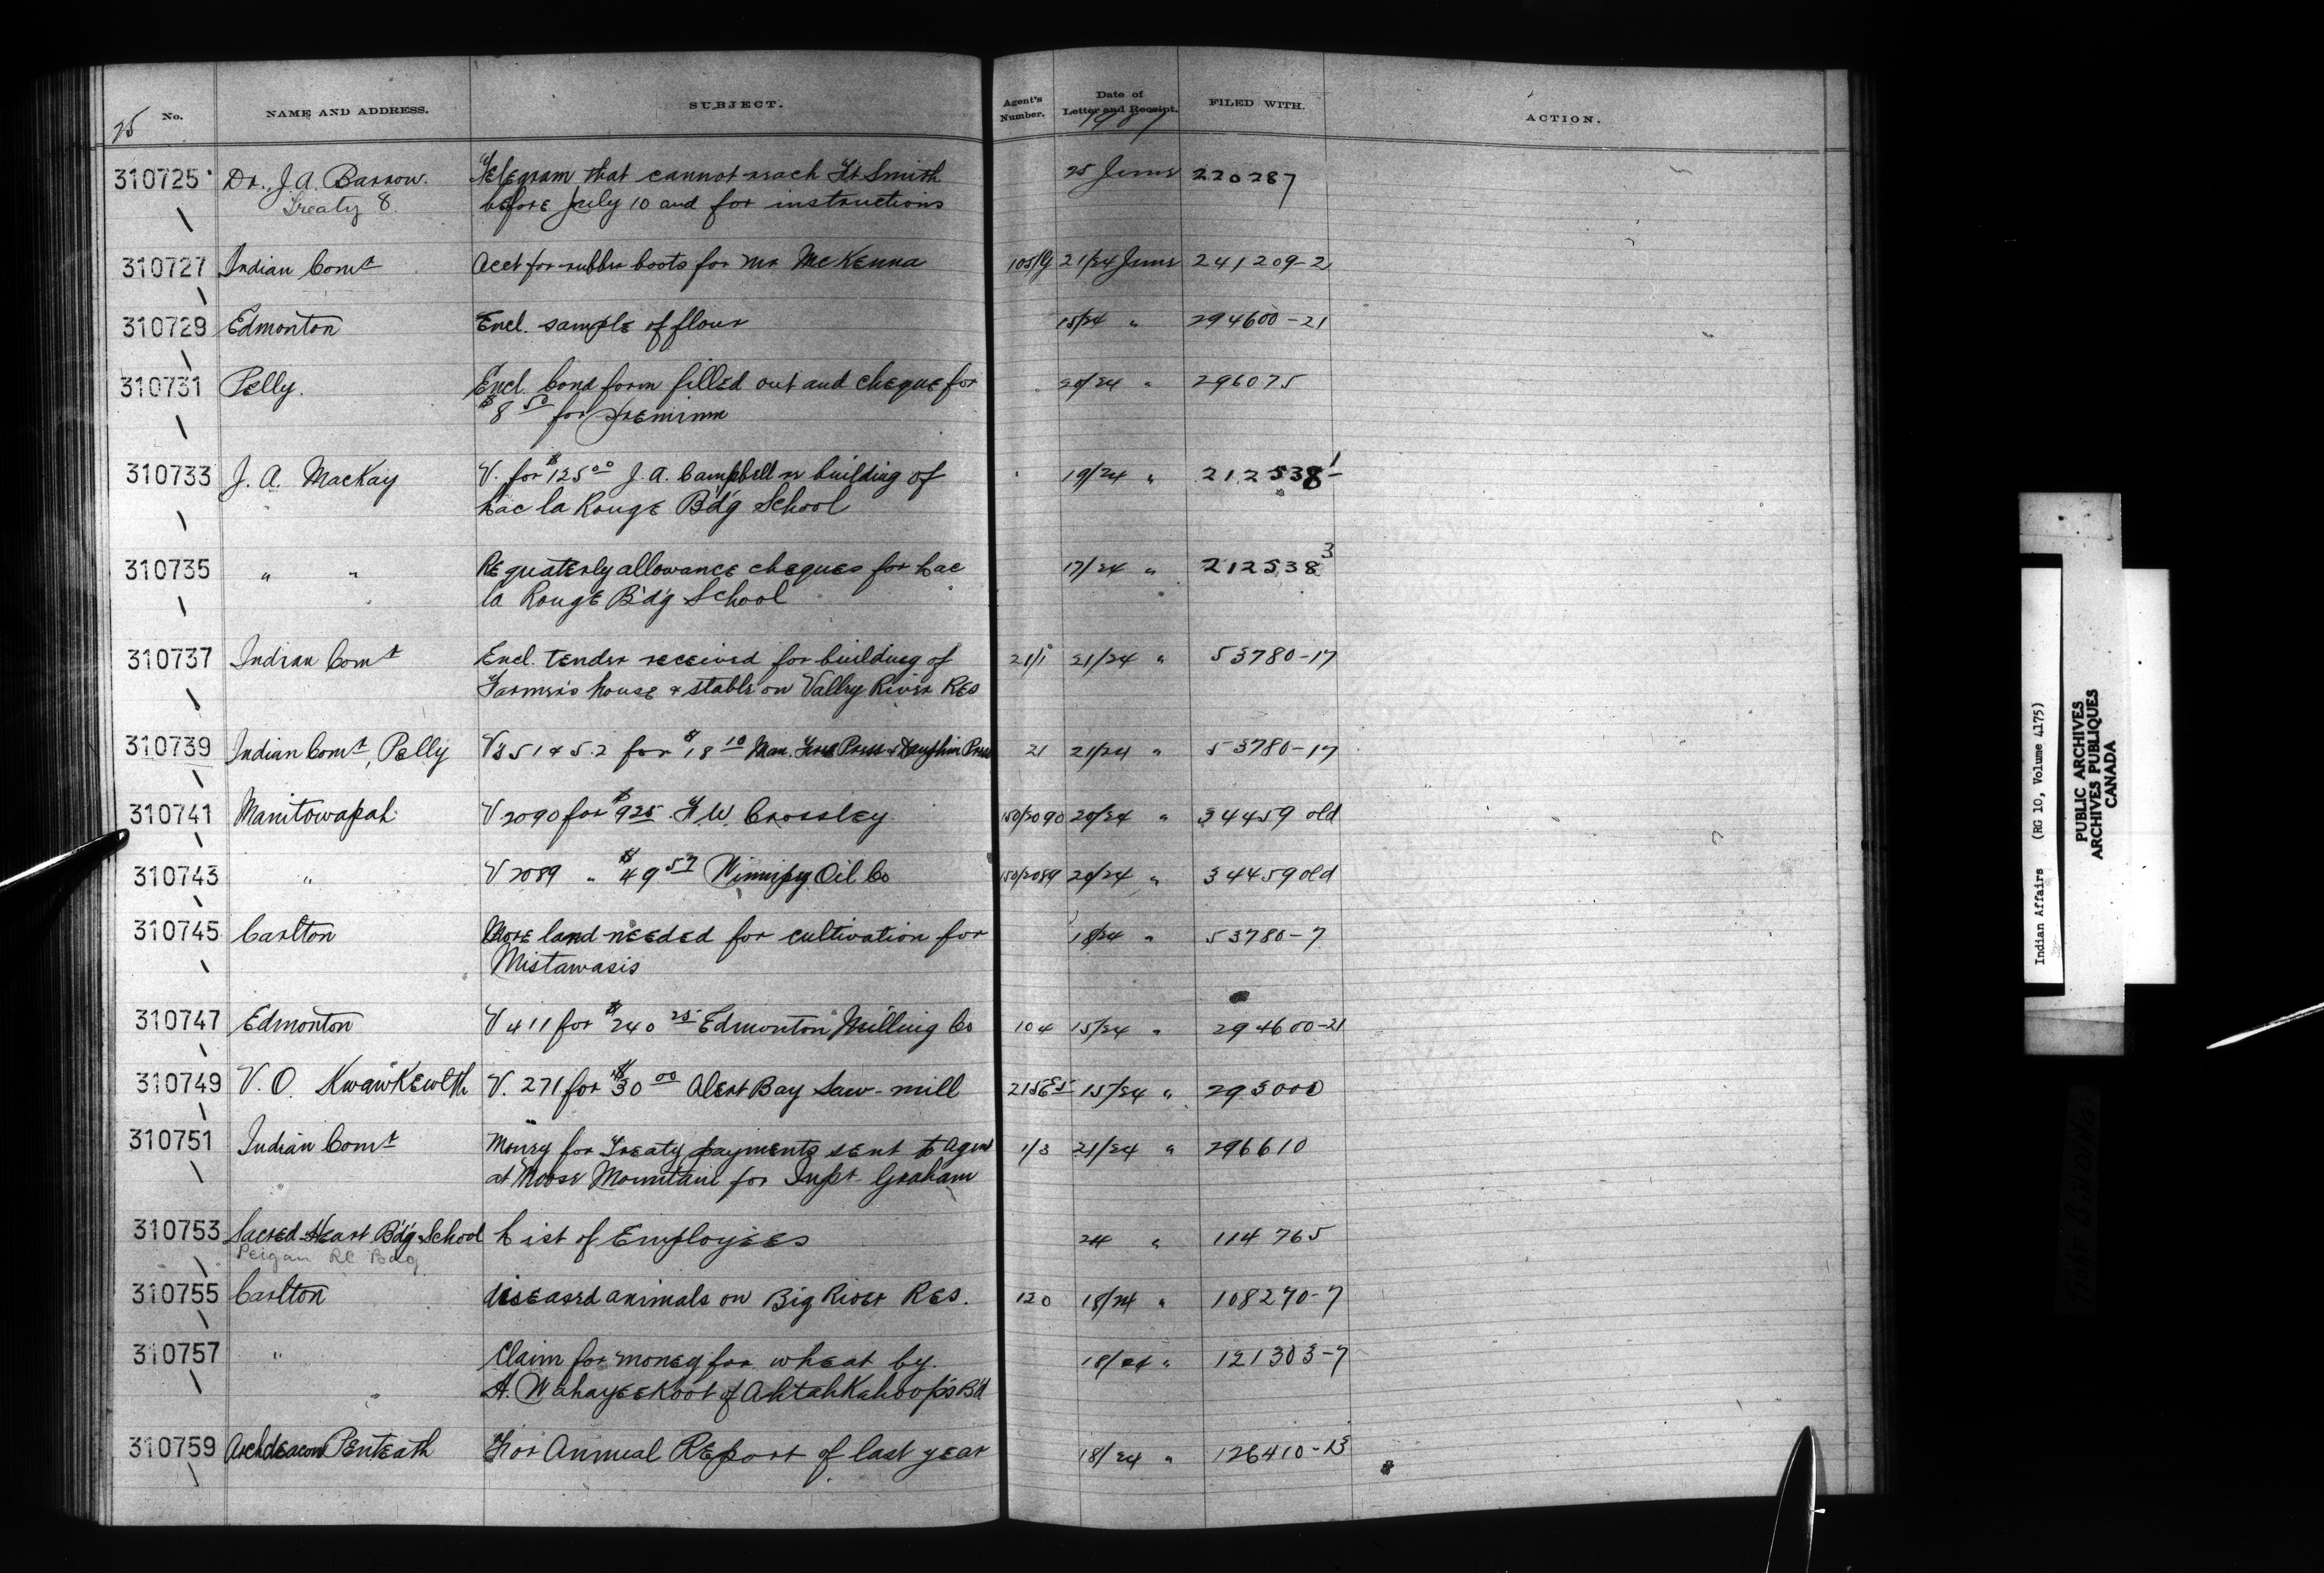 25 No. NAME AND ADDRESS. SUBJECT. Agent's Number. Date of Letter and Receipt. FILED WITH. ACTION.
1907
310725 Dr. J. A. Barrow. Telegram that cannot reach Ft Smith 25 June 220287
Treaty 8. before July 10 and for instructions
310727 Indian Comr Acct for rubber boots for Mr McKenna 105/19 21/24 June 241209-2
310729 Edmonton Encl. sample of flour 15/24 " 294600-21
310731 Pelly. Encl. bond form filled out and cheque for 20/24 " 296075
$8 50 for premium
310733 J. A. MacKay V. for $125 00 J. A. Campbell re building of 19/24 " 212538-1
Lac la Rouge B'd'g School
310735 " " Re quaterly allowance cheques for Lac 17/24 " 212538 3
la Rouge B'd'g School
310737 Indian Comr Encl. tender received for building of 21/1 21/24 " 53780-17
Farmer's house & stable on Valley River Res
310739 Indian Comr, Pelly Vs 51 & 52 for $18 10 Man. Free Press & Dauphin Press 21 21/24 " 53780-17
310741 Manitowapah V 2090 for $9 25 F W. Crossley 150/2090 20/24 " 34459 old
310743 " V 2089 " $49 57 Winnipeg Oil Co 150/2089 20/24 " 34459 old
310745 Carlton More land needed for cultivation for 18/24 " 53780-7
Mistawasis
310747 Edmonton V 411 for $240 25 Edmonton Milling Co 104 15/24 " 294600-21
310749 V. O. Kwawkewlth V. 271 for $30 00 Alert Bay Saw-mill 215E5 15/24 " 293000
310751 Indian Comr Money for Treaty payments sent to Agent 1/3 21/24 " 296610
at Moose Mountain for Inspt Graham
310753 Sacred Heart B'd'g School List of Employees 24 " 114765
Peigan RC Bdg
310755 Carlton Diseased animals on Big River Res. 120 18/24 " 108270-7
310757 " Claim for money for wheat by 18/24 " 121303-7
A. Wahayeekoot of Ahtahkahoop's B'd
310759 Archdeacon Penteath For Annual Report of last year 18/24 " 126410-13
Indian Affairs (RG 10, Volume 4175)
PUBLIC ARCHIVES
ARCHIVES PUBLIQUES
CANADA